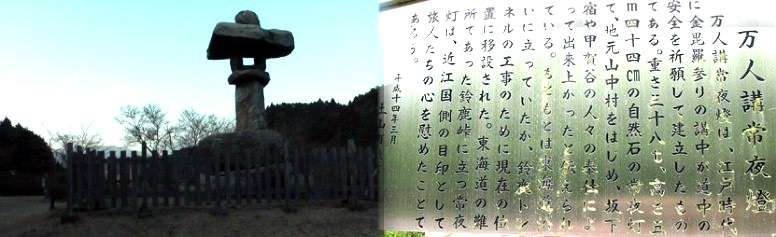 万人講常夜燈
万人講常夜燈は、江戸時代
に金毘羅参りの講中が道中の
安全を祈願して建立したもの
である。重さ三十八t、高さ五
m四十四cmの自然石の常夜灯
で、地元山中村をはじめ、坂下
宿や甲賀谷の人々の奉仕によ
って出来上がったと伝えられ
ている。もともとは東海道沿
いに立っていたが、鈴鹿トン
ネルの工事のために現在の位
置に移設された。東海道の難
所であった鈴鹿峠に立つ常夜
灯は、近江国側の目印として
旅人たちの心を慰めたことで
あろう。
平成十四年三月
土山町